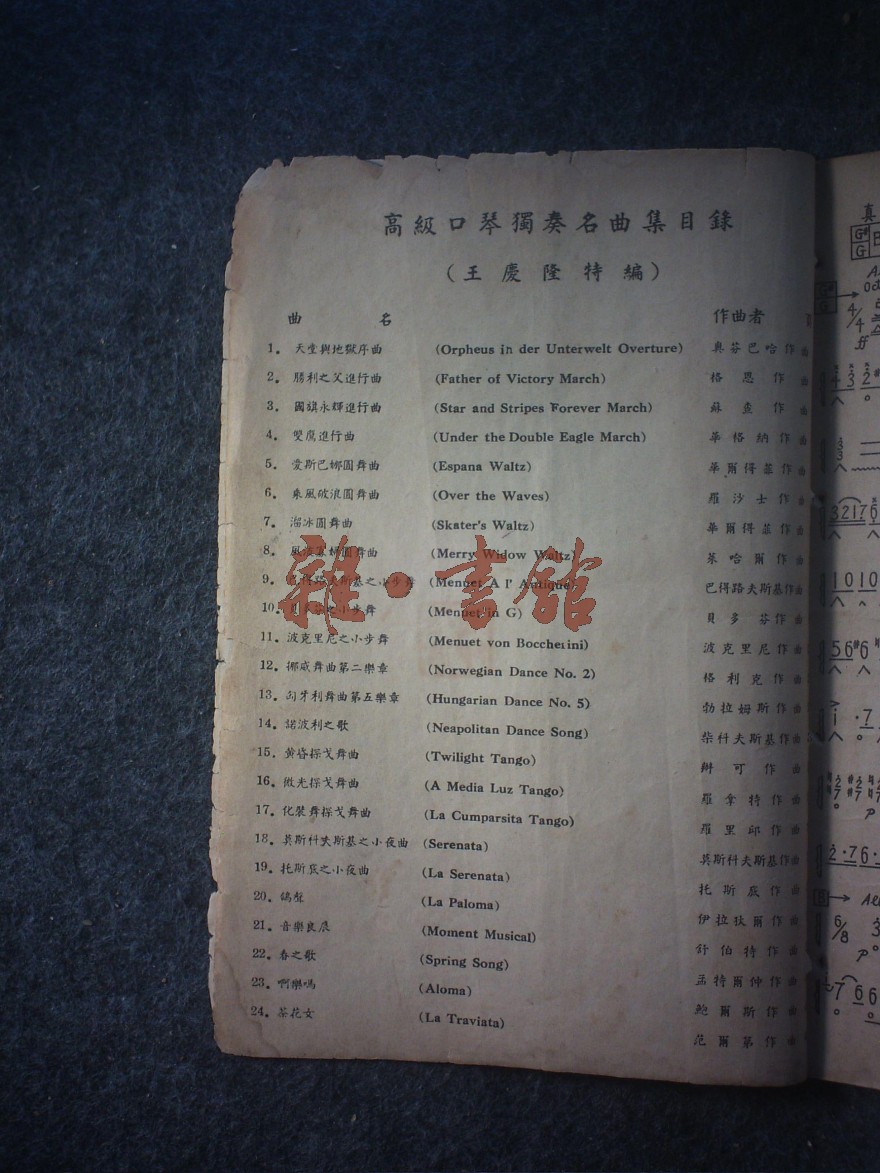 高級口琴獨奏名曲集目錄
(王慶隆特編)
曲名 作曲者
1. 天堂與地獄序曲 (Orpheus in der Unterwelt Overture) 奧芬巴哈作曲
2. 勝利之父進行曲 (Father of Victory March) 格恩作曲
3. 國旗永輝進行曲 (Star and Stripes Forever March) 蘇查作曲
4. 雙鷹進行曲 (Under the Double Eagle March) 華格納作曲
5. 愛斯巴娜圓舞曲 (Espana Waltz) 華爾得菲作曲
6. 乘風破浪圓舞曲 (Over the Waves) 羅沙士作曲
7. 溜冰圓舞曲 (Skater's Waltz) 華爾得菲作曲
8. 風流寡婦圓舞曲 (Merry Widow Waltz) 萊哈爾作曲
9. 巴得路夫斯基之小步舞 (Menuet A l' Antique) 巴得路夫斯基作曲
10. 貝多芬之小步舞 (Menuet in G) 貝多芬作曲
11. 波克里尼之小步舞 (Menuet von Boccherini) 波克里尼作曲
12. 挪威舞曲第二樂章 (Norwegian Dance No. 2) 格利克作曲
13. 匈牙利舞曲第五樂章 (Hungarian Dance No. 5) 勃拉姆斯作曲
14. 諾波利之歌 (Neapolitan Dance Song) 柴科夫斯基作曲
15. 黄昏探戈舞曲 (Twilight Tango) 可作曲
16. 微光探戈舞曲 (A Media Luz Tango) 羅拿特作曲
17. 化裝舞探戈舞曲 (La Cumparsita Tango) 羅里邱作曲
18. 莫斯科夫斯基之小夜曲 (Serenata) 莫斯科夫斯基作曲
19. 托斯底之小夜曲 (La Serenata) 托斯底作曲
20. 鴿 (La Paloma) 伊拉狄爾作曲
21. 音樂良辰 (Moment Musical) 舒伯特作曲
22. 春之歌 (Spring Song) 孟特爾仲作曲
23. 啊樂嗎 (Aloma) 鮑爾斯作曲
24. 茶花女 (La Traviata) 范爾第作曲
雜·書館